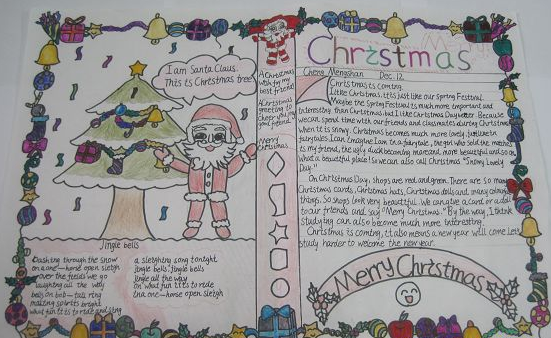 I am Santa Claus.
This is Christmas tree!
Jingle bells
Dashing through the snow
on a one-horse open sleigh
over the fields we go
laughing all the way
bells on bob-tail ring
making spirits bright
what fun it is to ride and sing
a sleighing song tonight
jingle bells, jingle bells
jingle all the way
oh what fun it is to ride
in a one-horse open sleigh
A Christmas
wish for my
best friend!
A Christmas
greeting to
cheer you, my
good friend!
Merry
Christmas
Merry
Christmas
Mengshan Dec. 12.
Christmas is coming.
I like Christmas. It is just like our Spring Festival.
Maybe the Spring Festival is much more important and
interesting than Christmas, but I like the Christmas Day better. Because
we can spend time with our friends and classmates during Christmas
when it is snowy. Christmas becomes much more lovely, just like in
fairytales. I can imagine I am in a fairytale, the girl who sold the matches
is my friend, the ugly duck becoming more and more beautiful and so on.
what a beautiful place! So we can also call Christmas "Snowy Lovely
Day."
On Christmas Day, shops are red and green. There are so many
Christmas cards, Christmas hats, Christmas dolls and many colourful
things. So shops look very beautiful. We can give a card or a doll
to our friends and say "Merry Christmas." By the way, I think
studying can also become much more interesting.
Christmas is coming, it also means a new year will come
study harder to welcome the new year.
Merry Christmas